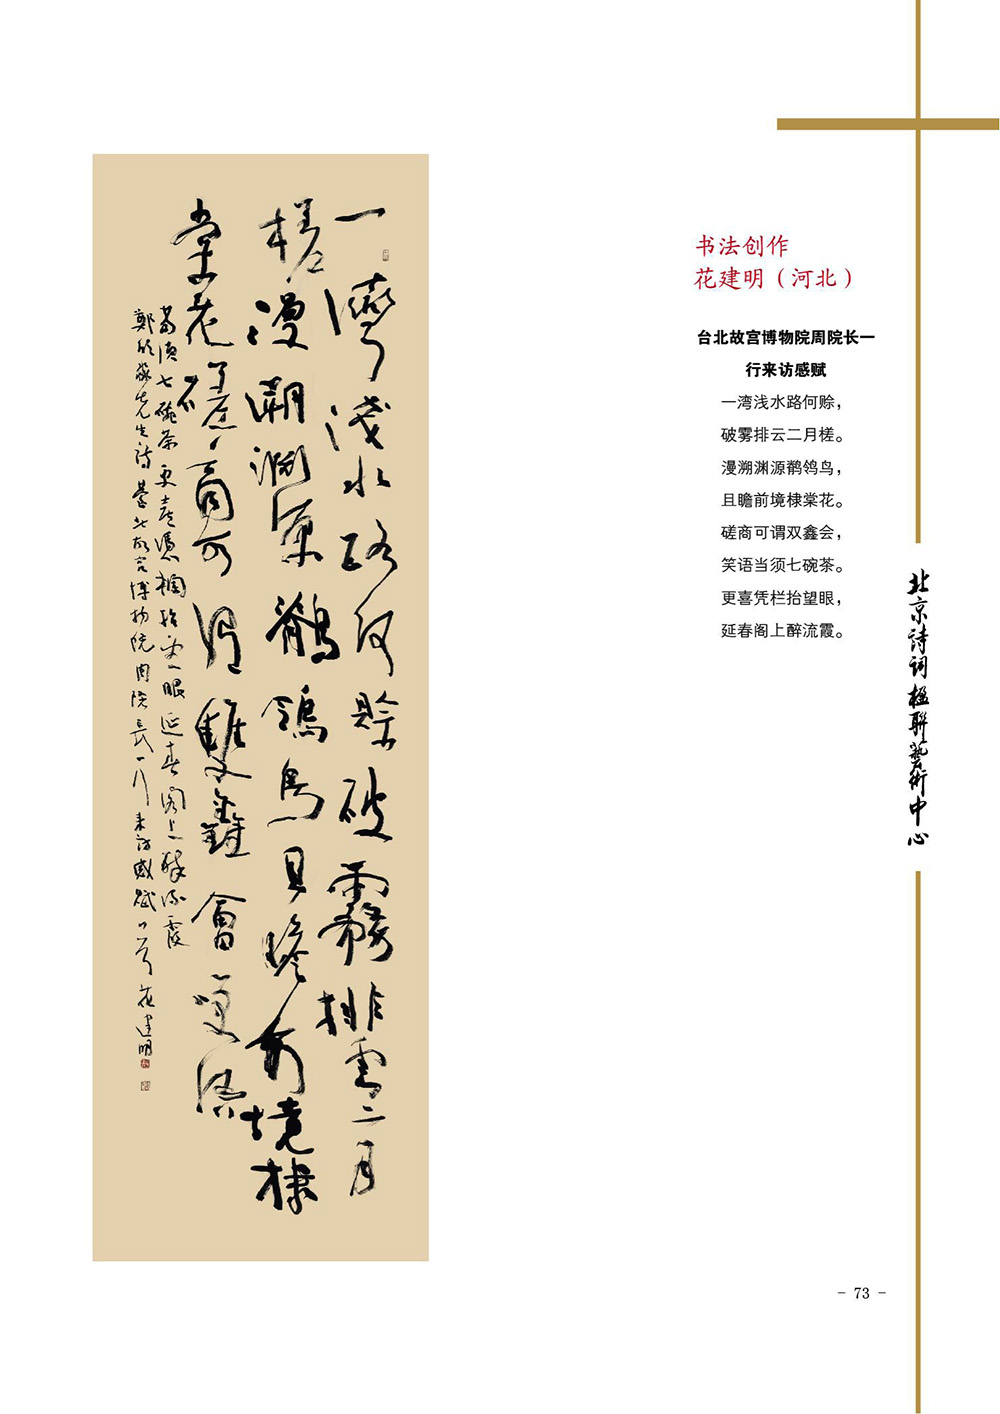 一灣淺水路何賒破霧排雲二月
槎漫溯淵源鶺鴒鳥且瞻前境棣
棠花磋商可謂雙鑫會笑語
當須七碗茶更喜憑欄抬望眼延春閣上醉流霞
鄭欣淼先生詩臺北故宮博物院周院長一行來訪感賦
花建明
书法创作
花建明（河北）
台北故宫博物院周院长一
行来访感赋
一湾浅水路何赊，
破雾排云二月槎。
漫溯渊源鹡鸰鸟，
且瞻前境棣棠花。
磋商可谓双鑫会，
笑语当须七碗茶。
更喜凭栏抬望眼，
延春阁上醉流霞。
北京诗词楹联艺术中心
- 73 -